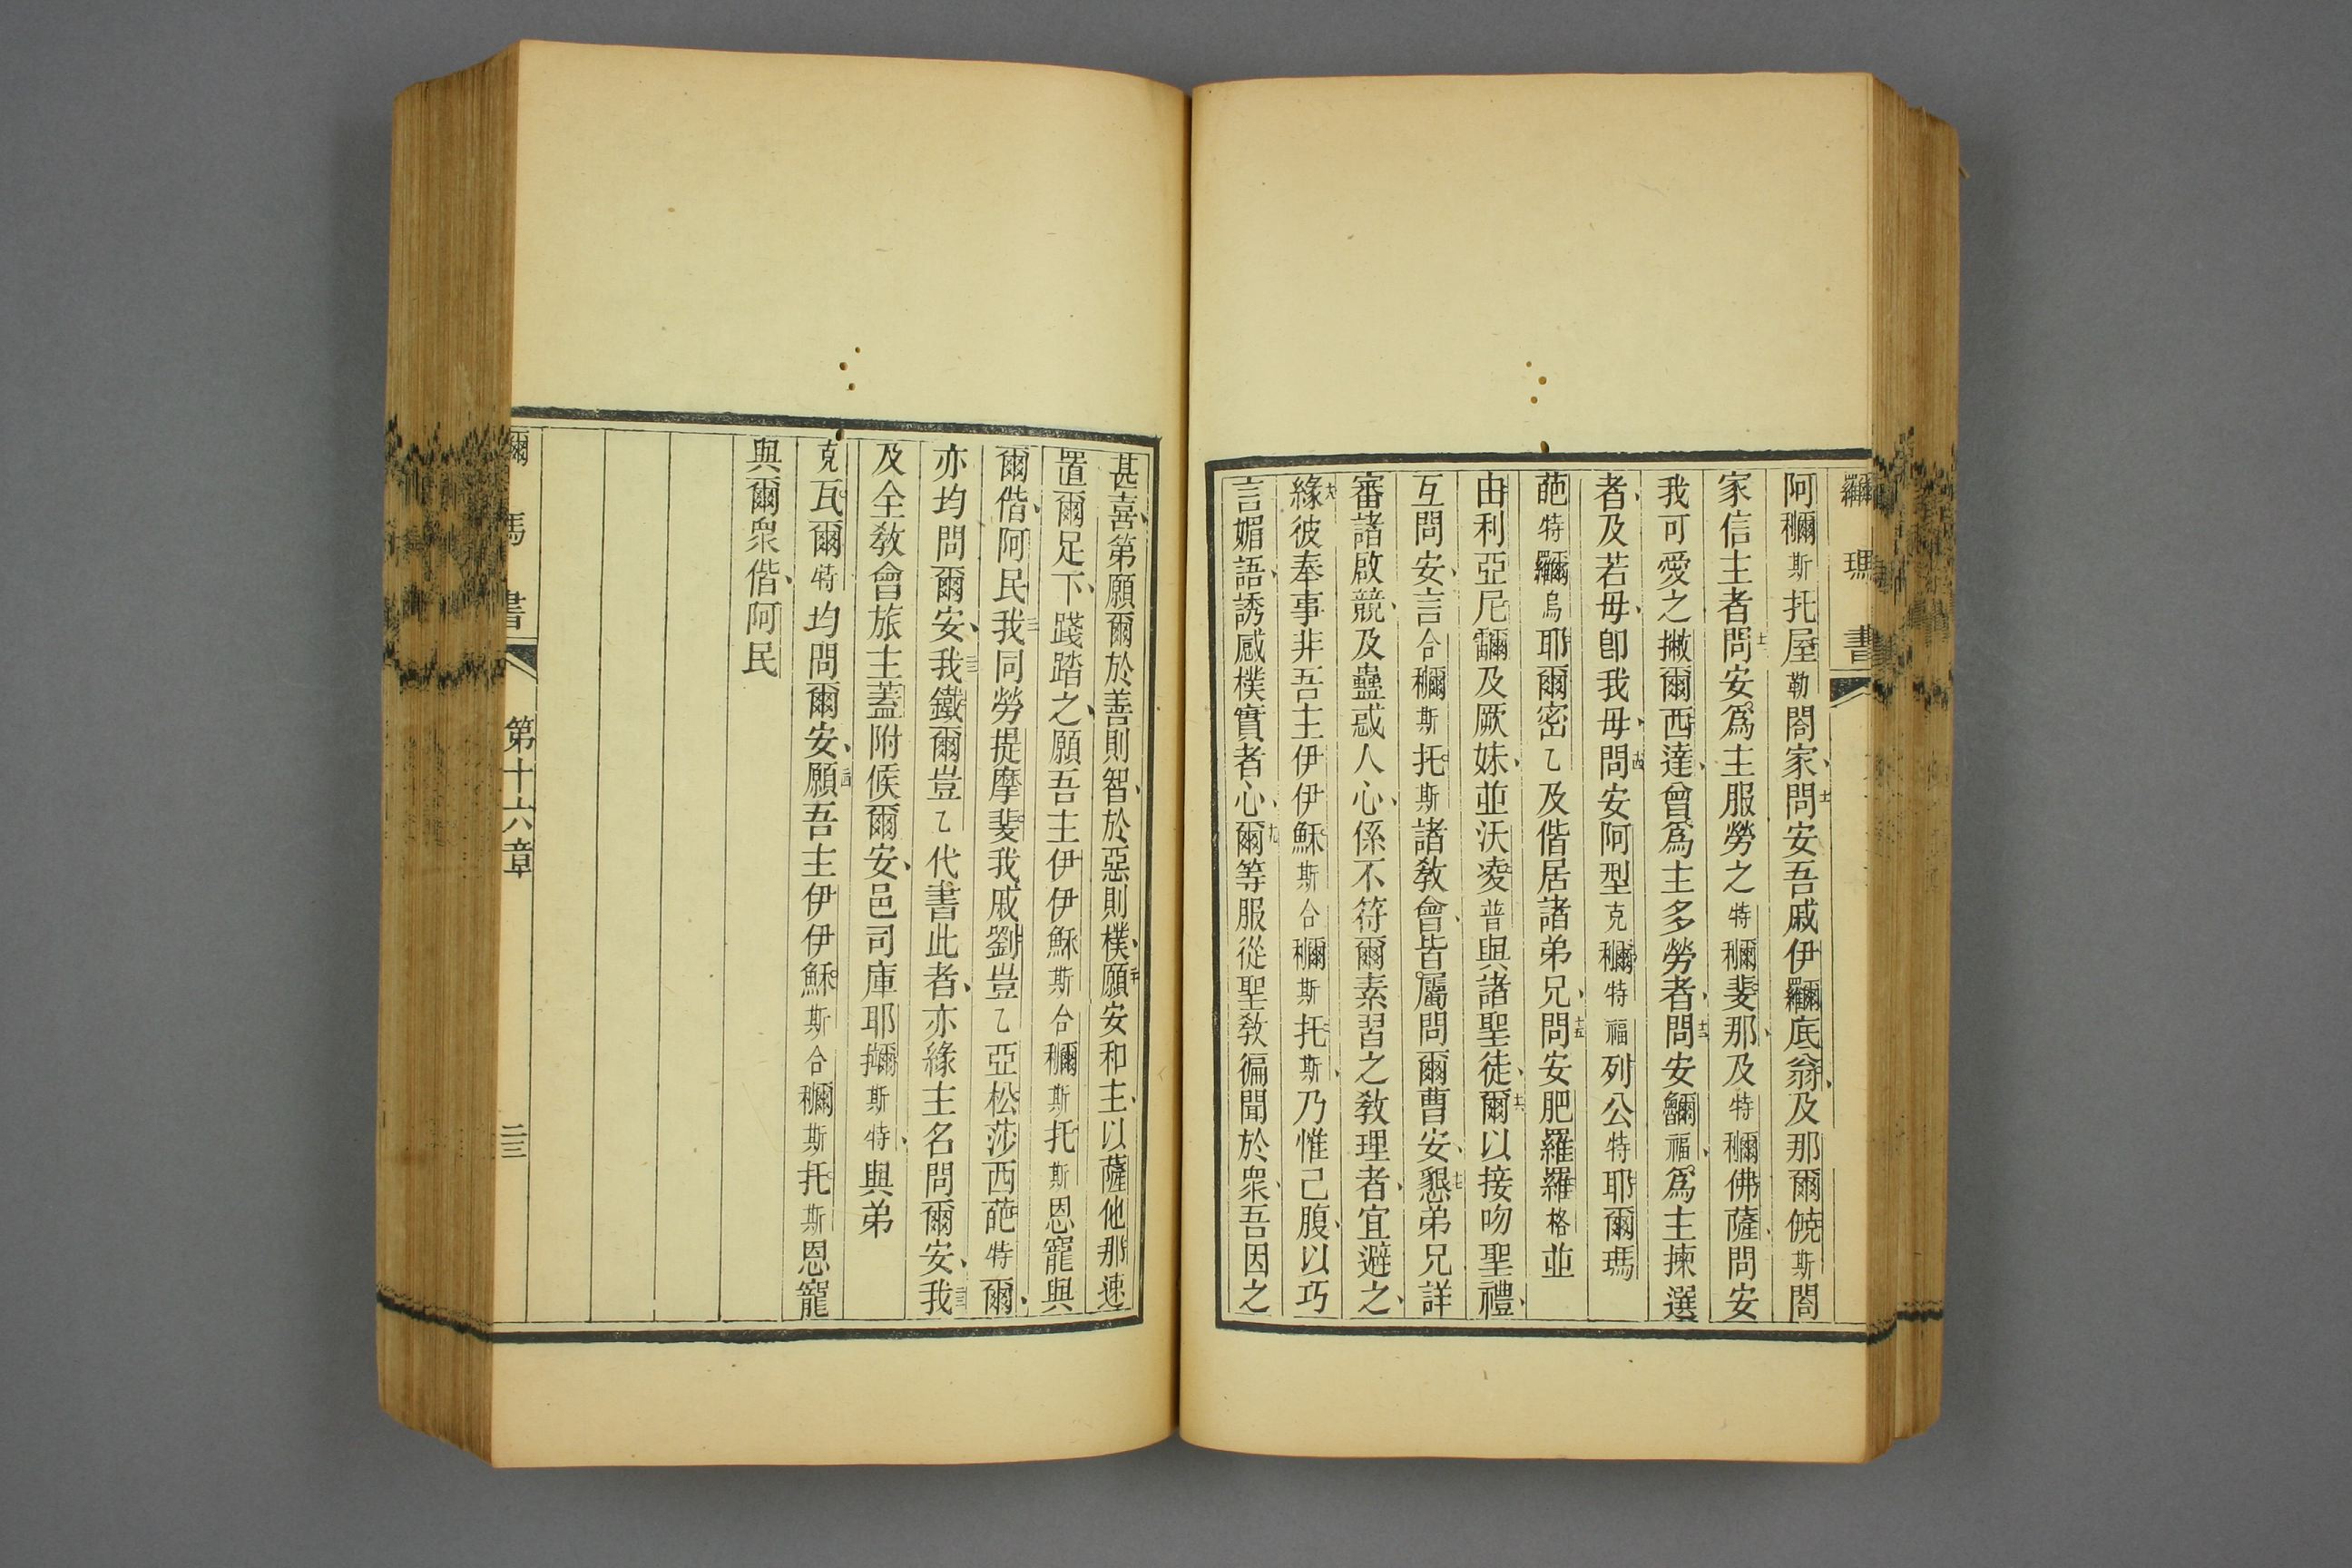 瑪書
阿𥡪斯托屋勒閤家、問安吾戚伊囉底翁、及那爾僥斯閤
家信主者、問安爲主服勞之特𥡪斐那、及特𥡪佛薩、問安
我可愛之撇爾西達、曾爲主多勞者、問安福、爲主揀選
者、及若毋、卽我毋、問安阿型克𥡪特福列公特耶爾瑪
葩特烏耶爾密乙及偕居諸弟兄、問安肥羅羅格並
由利亞尼及厥妹、並沃淩普與諸聖徒、爾以接吻聖禮、
互問安、言合𥡪斯托斯諸教會、皆屬問爾曹安、懇弟兄詳
審諸啟競、及蠱惑人心、係不符爾素習之教理者、宜避之、
緣彼奉事非吾主伊伊穌斯合𥡪斯托斯、乃惟己腹、以巧
言媚語、誘惑樸實者心、爾等服從聖教徧聞於衆、吾因之
甚喜、第願爾於善則智、於惡則樸、願安和主、以薩他那速
置爾足下、踐踏之、願吾主伊伊穌斯合𥡪斯托斯恩寵與
爾偕、阿民、我同勞提摩斐我戚劉豈乙亞松莎西葩特爾、
亦均問爾安、我鐵爾豈乙代書此者、亦緣主名問爾安、我
及全教會旅主蓋附候爾安、邑司庫耶斯特、與弟
克瓦爾特均問爾安、願吾主伊伊穌斯合𥡪斯托斯恩寵
與爾衆偕、阿民
書
第十六章
二三